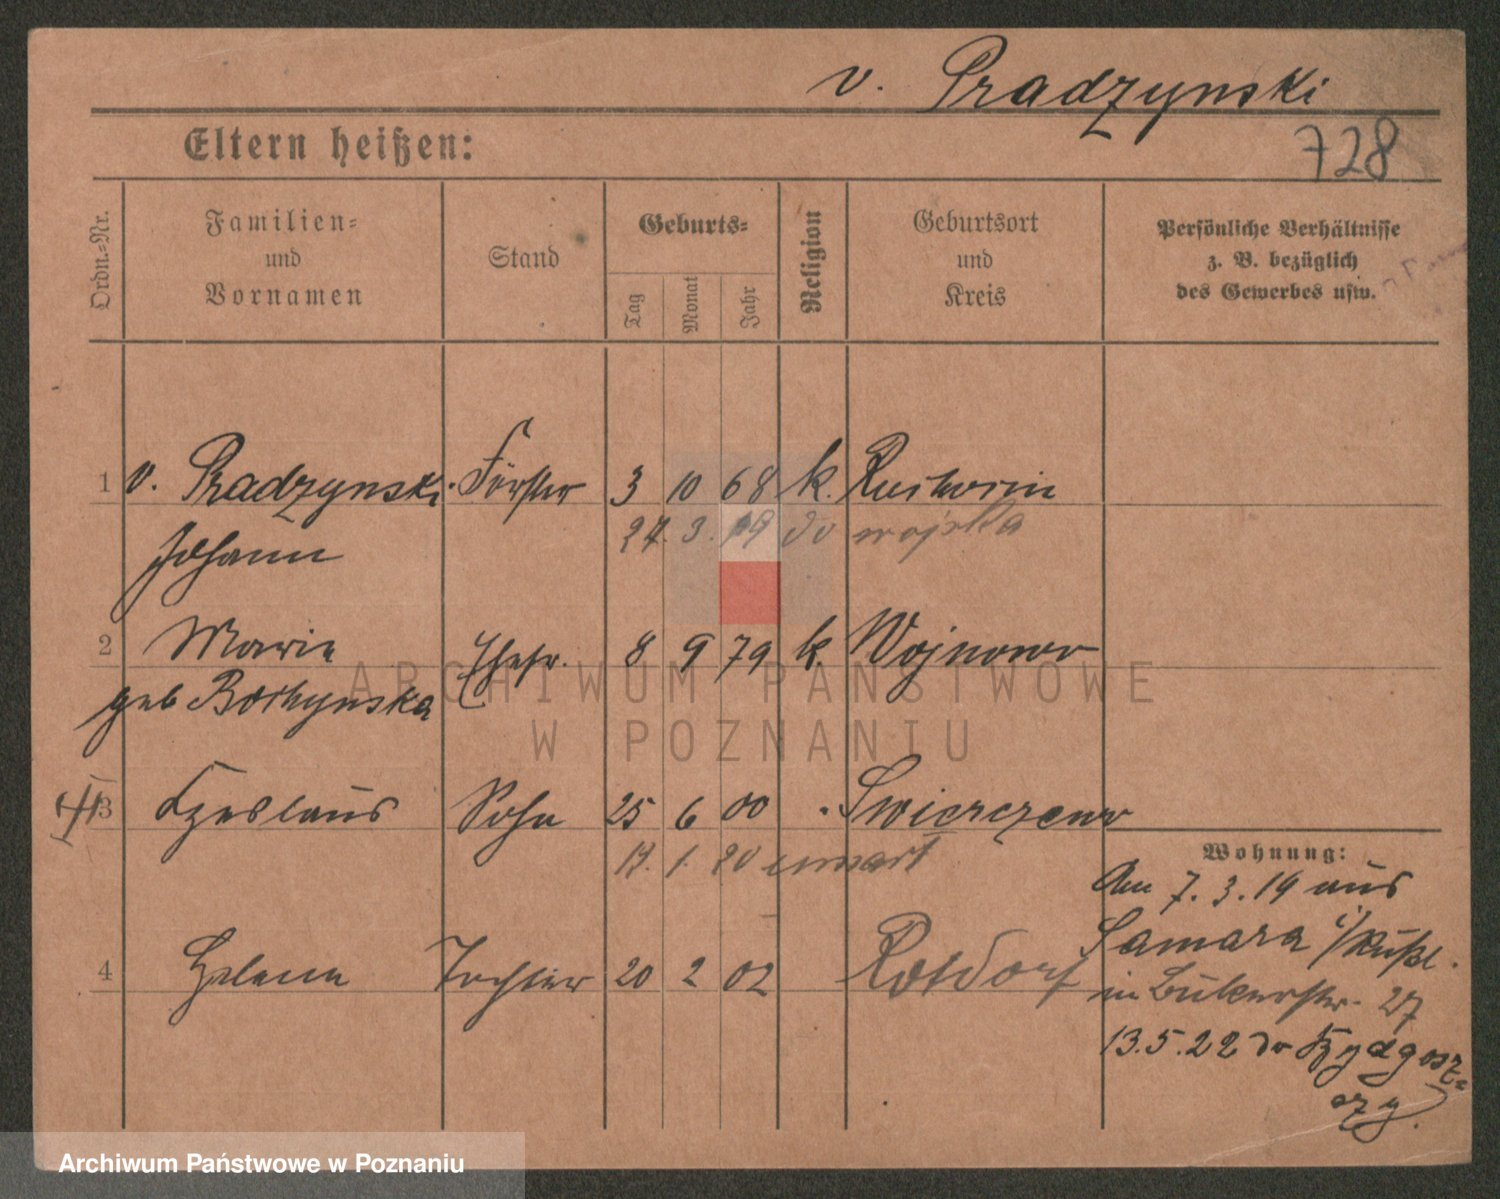 v. Pradzynski
Eltern heißen:
728
Ordn.=Nr.
Familien=
und
Vornamen
Stand
Geburts=
Tag
Monat
Jahr
Religion
Geburtsort
und
Kreis
Persönliche Verhältnisse
z. B. bezüglich
des Gewerbes usw.
1 v. Pradzynski Förster 3 10 68 k.
Johann 27. 3. 19 do wojska
2 Marie Ehefr. 8 9 79 k. Wojnowo
geb
3 Czeslaus Sohn 25 6 00 Swierczewo
1. 20
4 Helena Tochter 20 2 02 Rotdorf
Wohnung:
Am 7. 3. 19 aus
Samara i/Rußl.
in Bukerstr. 27
13. 5. 22 do Bydgosz=
czy
ARCHIWUM PAŃSTWOWE
W POZNANIU
Archiwum Państwowe w Poznaniu